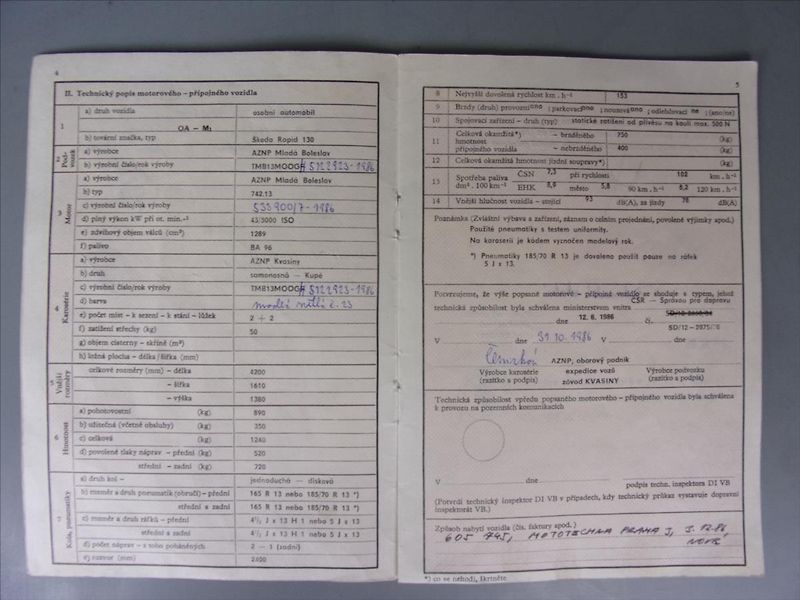 4
II. Technický popis motorového – přípojného vozidla
1
a) druh vozidla
osobní automobil
OA – M1
b) tovární značka, typ
Škoda Rapid 130
2 Podvozek
a) výrobce
AZNP Mladá Boleslav
b) výrobní číslo/rok výroby
TMB13MOOG
5122923-1986
3 Motor
a) výrobce
AZNP Mladá Boleslav
b) typ
742.13
c) výrobní číslo/rok výroby
d) plný výkon kW při ot. min.-1
43/5000 ISO
e) zdvihový objem válců (cm³)
1289
f) palivo
BA 96
4 Karosérie
a) výrobce
AZNP Kvasiny
b) druh
samonosná – Kupé
c) výrobní číslo/rok výroby
TMB13MOOG
5122923-1986
d) barva
modrá
e) počet míst – k sezení – k stání – lůžek
2 + 2
f) zatížení střechy (kg)
50
g) objem cisterny – skříně (m³)
h) ložná plocha – délka/šířka (mm)
5 Vnější rozměry
celkové rozměry (mm) – délka
4200
– šířka
1610
– výška
1380
6 Hmotnost
a) pohotovostní (kg)
890
b) užitečná (včetně obsluhy) (kg)
350
c) celková (kg)
1240
d) povolené tlaky náprav – přední (kg)
520
střední – zadní (kg)
720
7 Kola, pneumatiky
a) druh kol –
jednoduchá – disková
b) rozměr a druh pneumatik (obručí) – přední
165 R 13 nebo 185/70 R 13 *)
střední a zadní
165 R 13 nebo 185/70 R 13 *)
c) rozměr a druh ráfků – přední
4½ J x 13 H 1 nebo 5 J x 13
střední a zadní
4½ J x 13 H 1 nebo 5 J x 13
d) počet náprav – z toho poháněných
2 – 1 (zadní)
e) rozvor (mm)
2400
5
8 Nejvyšší dovolená rychlost km . h-1
153
9 Brzdy (druh) provozní ano ; parkovací ano ; nouzová ano ; odlehčovací ne ; (ano/ne)
10 Spojovací zařízení – druh (typ) statické zatížení od přívěsu na kouli max. 500 N
11 Celková okamžitá*) – brzděného 750
hmotnost (kg)
přípojného vozidla – nebrzděného 400
12 Celková okamžitá hmotnost jízdní soupravy*) (kg)
13 Spotřeba paliva ČSN 7,3 při rychlosti 102 km . h-1
dm³ . 100 km-1 EHK 8,9 město 5,8 90 km . h-1 8,2 120 km . h-1
14 Vnější hlučnost vozidla – stojící 93 dB(A), za jízdy 78 dB(A)
Poznámka (Zvláštní výbava a zařízení, záznam o celním projednání, povolené výjimky apod.)
Použité pneumatiky s testem uniformity.
Na karoserii je kódem vyznačen modelový rok.
*) Pneumatiky 185/70 R 13 je dovoleno použít pouze na ráfek
5 J x 13.
Potvrzujeme, že výše popsané motorové – přípojné vozidlo se shoduje s typem, jehož
ČSR — Správou pro dopravu
technická způsobilost byla schválena ministerstvem vnitra
12. 6. 1986
dne č.
SD/12-2075/86
31.10.1986
V dne V dne
AZNP, oborový podnik
Výrobce karosérie expedice vozů Výrobce podvozku
(razítko a podpis) závod KVASINY (razítko a podpis)
Technická způsobilost vpředu popsaného motorového – přípojného vozidla byla schválena
k provozu na pozemních komunikacích
V dne
podpis techn. inspektora DI VB
(Potvrdí technický inspektor DI VB v případech, kdy technický průkaz vystavuje dopravní
inspektorát VB.)
Způsob nabytí vozidla (čís. faktury apod.)
605 745, MOTOTECHNA PRAHA
NOVÉ
*) co se nehodí, škrtněte